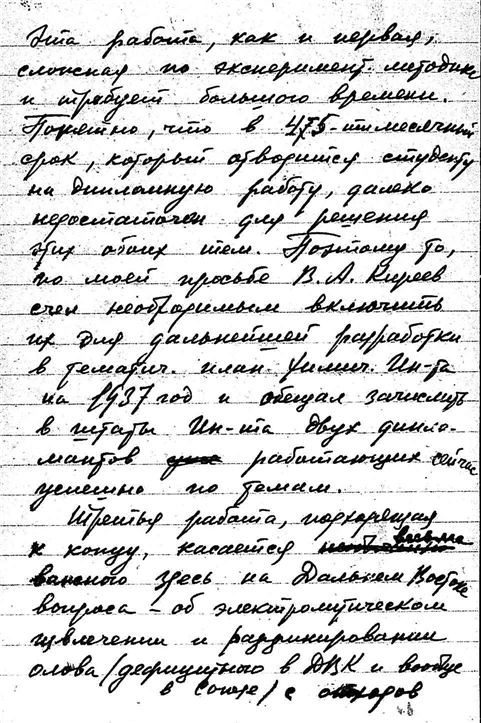 Эта работа, как и первая,
сложная по эксперимент. методике
и требует большого времени.
Понятно, что в 4-5-тимесячный
срок, который отводится студенту
на дипломную работу, далеко
недостаточен для решения
этих обоих тем. Поэтому то,
по моей просьбе В. А. Киреев
счел необходимым включить
их для дальнейшей разработки
в тематич. план. Химич. Ин-та
на 1937 год и обещал зачислить
в штаты Ин-та двух дипло-
мантов работающих сейчас
успешно по темам.
Третья работа, подходящая
к концу, касается весьма
важного здесь на Дальнем Востоке
вопроса – об электролитическом
извлечении и раффинировании
олова /дефицитного в ДВК и вообще
в Союзе/ с